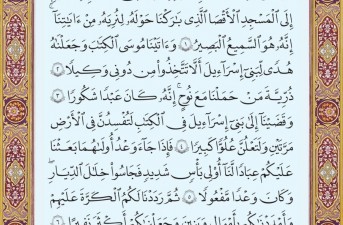 إِلَى ٱلْمَسْجِدِ ٱلْأَقْصَا ٱلَّذِى بَٰرَكْنَا حَوْلَهُۥ لِنُرِيَهُۥ مِنْ ءَايَٰتِنَآ
إِنَّهُۥ هُوَ ٱلسَّمِيعُ ٱلْبَصِيرُ ١ وَءَاتَيْنَا مُوسَى ٱلْكِتَٰبَ وَجَعَلْنَٰهُ
هُدًى لِّبَنِىٓ إِسْرَٰٓءِيلَ أَلَّا تَتَّخِذُوا۟ مِن دُونِى وَكِيلًا ٢
ذُرِّيَّةَ مَنْ حَمَلْنَا مَعَ نُوحٍ إِنَّهُۥ كَانَ عَبْدًا شَكُورًا ٣
وَقَضَيْنَآ إِلَىٰ بَنِىٓ إِسْرَٰٓءِيلَ فِى ٱلْكِتَٰبِ لَتُفْسِدُنَّ فِى ٱلْأَرْضِ
مَرَّتَيْنِ وَلَتَعْلُنَّ عُلُوًّا كَبِيرًا ٤ فَإِذَا جَآءَ وَعْدُ أُولَىٰهُمَا بَعَثْنَا
عَلَيْكُمْ عِبَادًا لَّنَآ أُو۟لِى بَأْسٍ شَدِيدٍ فَجَاسُوا۟ خِلَٰلَ ٱلدِّيَارِ
وَكَانَ وَعْدًا مَّفْعُولًا ٥ ثُمَّ رَدَدْنَا لَكُمُ ٱلْكَرَّةَ عَلَيْهِمْ
وَأَمْدَدْنَٰكُم بِأَمْوَٰلٍ وَبَنِينَ وَجَعَلْنَٰكُمْ أَكْثَرَ نَفِيرًا ٦